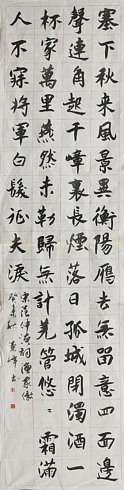 塞下秋來風景異衡陽雁去無留意四面邊
聲連角起千嶂裏長煙落日孤城閉濁酒一
杯家萬里燕然未勒歸無計羌管悠悠霜滿
人不寐將軍白髮征夫淚
宋范仲淹詞漁家傲